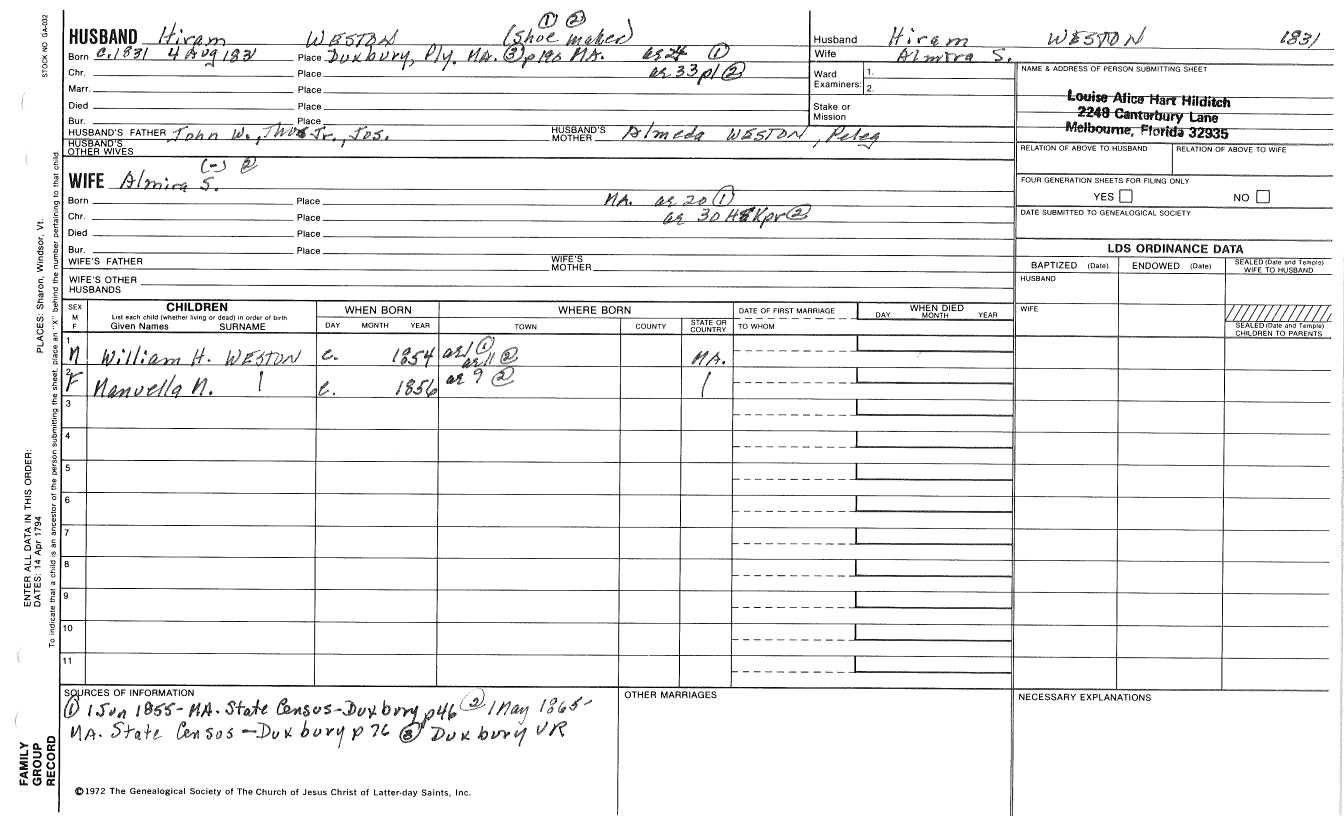 STOCK NO GA-032
① ②
HUSBAND Hiram WESTON (Shoe maker)
Born c.1831 4 Aug 1831 Place Duxbury, Ply. MA. ③ p190 MA. ae 24 ①
Chr. Place ae 33 p1 ②
Marr. Place
Died Place
Bur. Place
HUSBAND'S FATHER John W., Thos Jr., Jos. HUSBAND'S MOTHER Almeda WESTON, Peleg
HUSBAND'S OTHER WIVES
(-) ②
WIFE Almira S.
Born Place MA. ae 20 ①
Chr. Place ae 30 HsKpr ②
Died Place
Bur. Place
WIFE'S FATHER WIFE'S MOTHER
WIFE'S OTHER HUSBANDS
Husband Hiram WESTON 1831
Wife Almira S.
Ward Examiners: 1. 2.
Stake or Mission
NAME & ADDRESS OF PERSON SUBMITTING SHEET
Louise Alice Hart Hilditch
2248 Canterbury Lane
Melbourne, Florida 32935
RELATION OF ABOVE TO HUSBAND RELATION OF ABOVE TO WIFE
FOUR GENERATION SHEETS FOR FILING ONLY
YES NO
DATE SUBMITTED TO GENEALOGICAL SOCIETY
LDS ORDINANCE DATA
BAPTIZED (Date) ENDOWED (Date) SEALED (Date and Temple) WIFE TO HUSBAND
HUSBAND
WIFE
SEALED (Date and Temple) CHILDREN TO PARENTS
SEX M F
CHILDREN
List each child (whether living or dead) in order of birth
Given Names SURNAME
WHEN BORN
DAY MONTH YEAR
WHERE BORN
TOWN COUNTY STATE OR COUNTRY
DATE OF FIRST MARRIAGE
TO WHOM
WHEN DIED
DAY MONTH YEAR
1 M William H. WESTON c. 1854 ae 1 ① ae 11 ② MA.
2 F Manuella N. c. 1856 ae 9 ②
3
4
5
6
7
8
9
10
11
SOURCES OF INFORMATION
① 1 Jun 1855-MA. State Census-Duxbury p46 ② 1 May 1865-
MA. State Census-Duxbury p 76 ③ Duxbury VR
OTHER MARRIAGES
NECESSARY EXPLANATIONS
©1972 The Genealogical Society of The Church of Jesus Christ of Latter-day Saints, Inc.
PLACES: Sharon, Windsor, Vt.
ENTER ALL DATA IN THIS ORDER:
DATES: 14 Apr 1794
To indicate that a child is an ancestor of the person submitting the sheet, place an "X" behind the number pertaining to that child
FAMILY
GROUP
RECORD